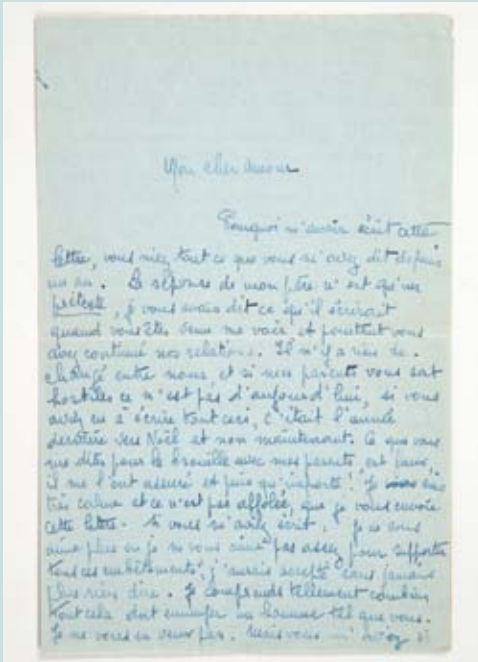 Mon cher amour
Pourquoi m'avoir écrit cette
lettre, vous niez tout ce que vous m'avez dit depuis
un an. La réponse de mon père n'est qu'un
prétexte, je vous avais dit ce qu'il écrirait
quand vous êtes venu me voir et pourtant vous
avez continué nos relations. Il n'y a rien de
changé entre nous, et si mes parents vous sont
hostiles ce n'est pas d'aujourd'hui, si vous
aviez eu à écrire tout ceci, c'était l'année
dernière vers Noël et non maintenant. Ce que vous
me dites pour la brouille avec mes parents est faux,
ils me l'ont assuré et puis qu'importe! Je suis
très calme et ce n'est pas affolée, que je vous envoie
cette lettre. Si vous m'aviez écrit, je ne vous
aime plus ou je ne vous aime pas assez pour supporter
tous ces embêtements, j'aurais accepté sans jamais
plus rien dire. Je comprends tellement combien
tout cela doit ennuyer un homme tel que vous.
Je ne vous en veux pas. Mais vous m'avez si